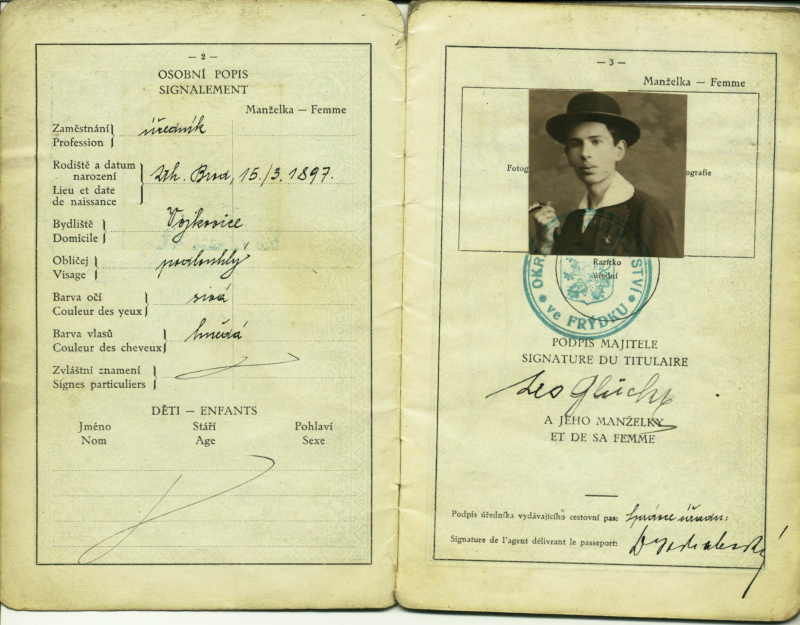 — 2 —
OSOBNÍ POPIS
SIGNALEMENT
Manželka — Femme
Zaměstnání
Profession
úředník
Rodiště a datum
narození
Lieu et date
de naissance
Uh. Brod, 15./3. 1897.
Bydliště
Domicile
Vojkovice
Obličej
Visage
podlouhlý
Barva očí
Couleur des yeux
sivá
Barva vlasů
Couleur des cheveux
hnědá
Zvláštní znamení
Signes particuliers
DĚTI — ENFANTS
Jméno Stáří Pohlaví
Nom Age Sexe
— 3 —
Manželka — Femme
Fotog
ografie
Razítko
úřední
ve FRÝDKU
PODPIS MAJITELE
SIGNATURE DU TITULAIRE
Leo
A JEHO MANŽELKY
ET DE SA FEMME
Podpis úředníka vydávajícího cestovní pas:
Signature de l'agent délivrant le passeport: